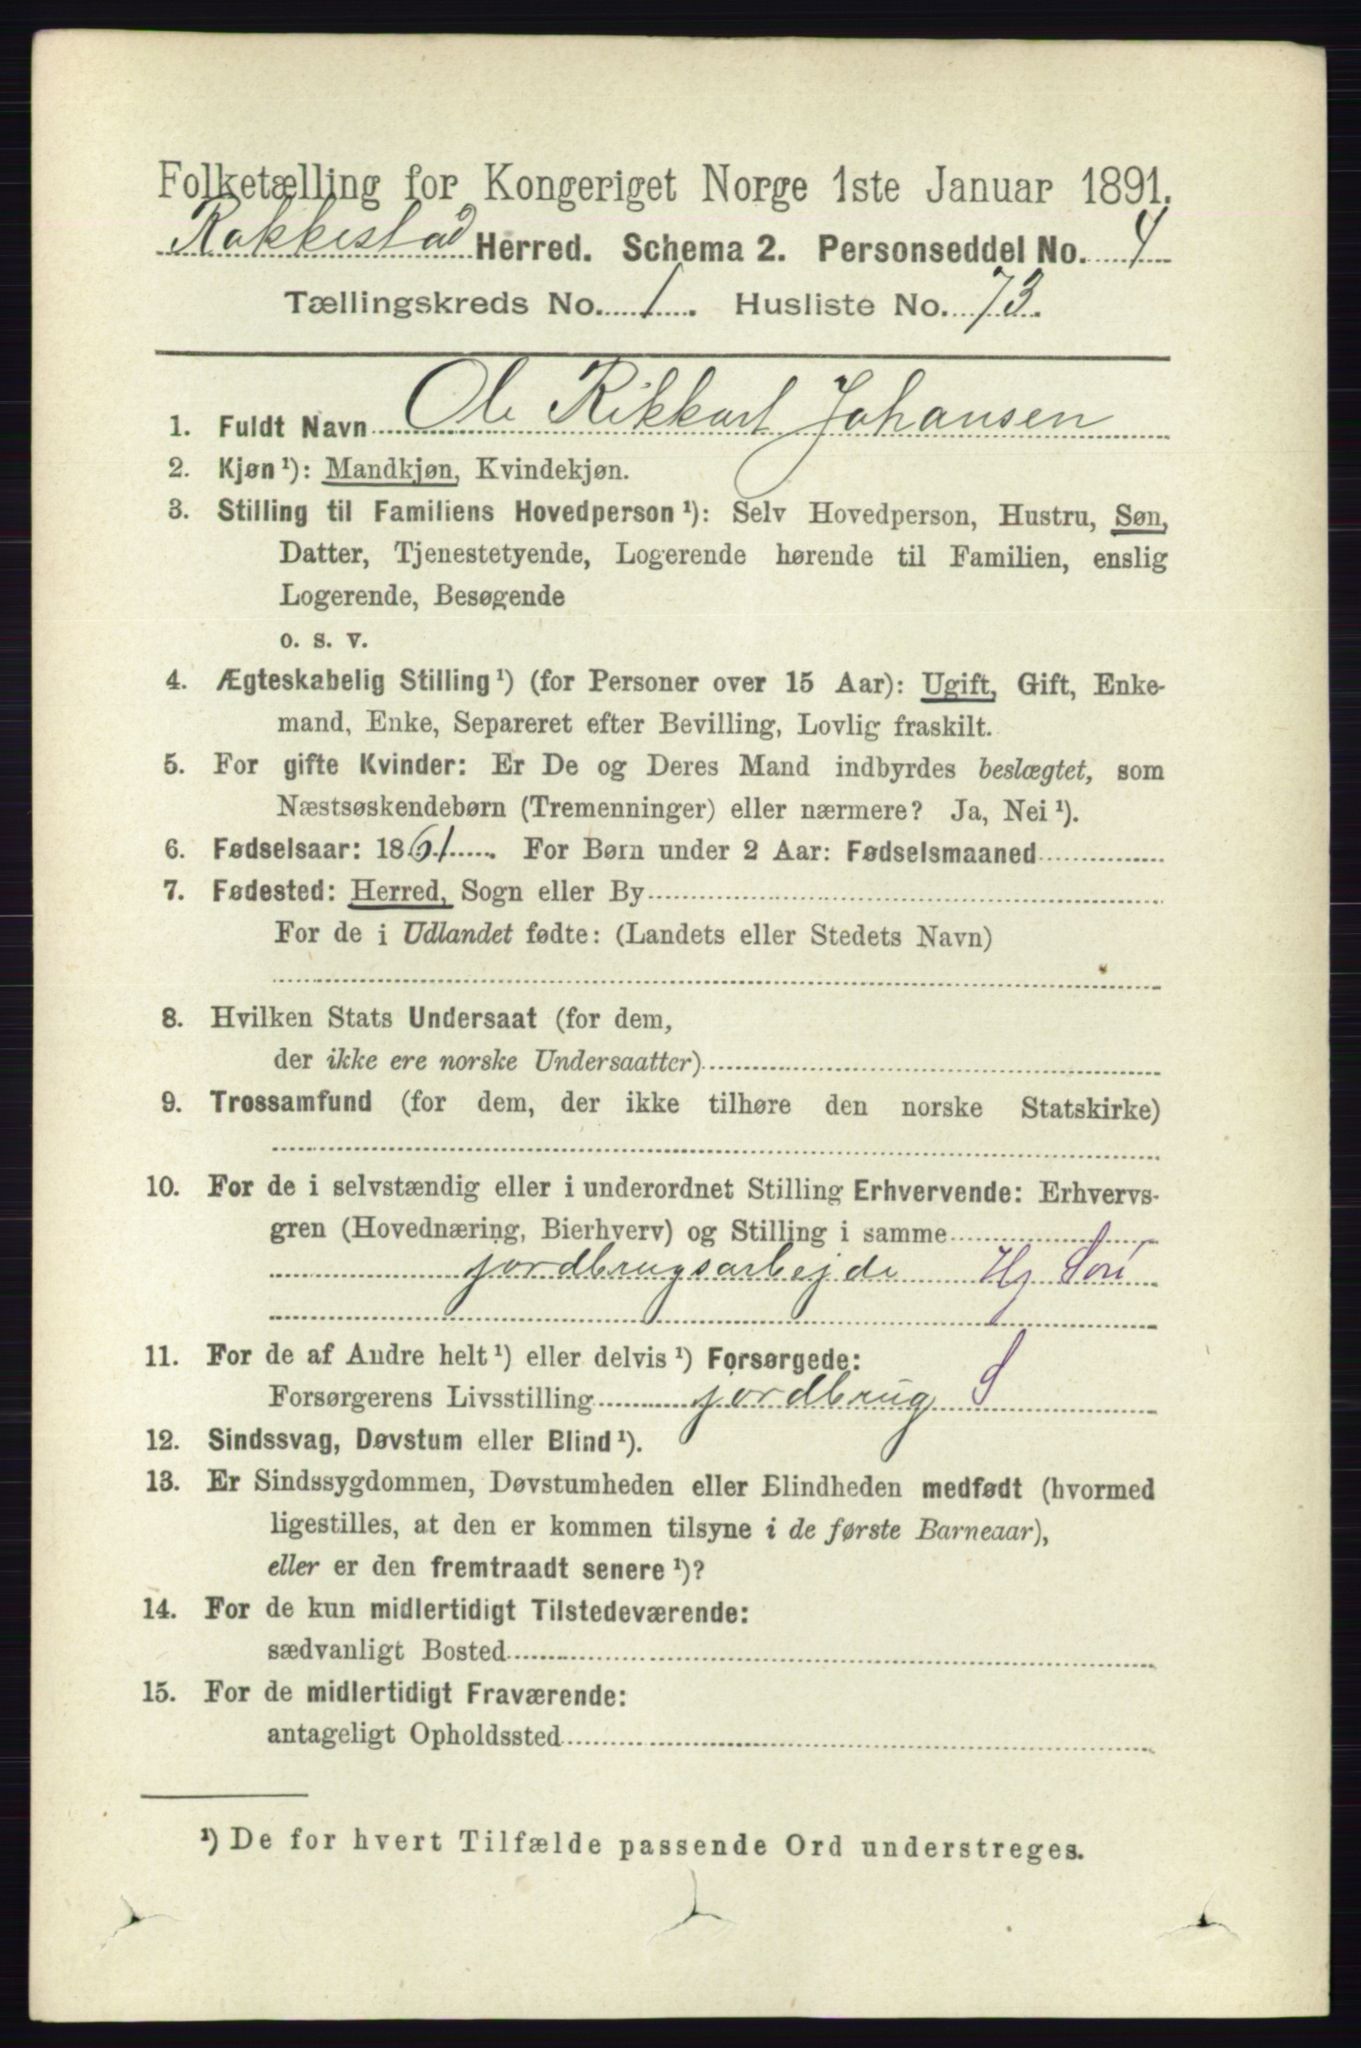 Folketælling for Kongeriget Norge 1ste Januar 1891.
Rakkestad Herred. Schema 2. Personseddel No. 4
Tællingskreds No. 1. Husliste No. 73.
1. Fuldt Navn Ole Rikkart Johansen
2. Kjøn¹): Mandkjøn, Kvindekjøn.
3. Stilling til Familiens Hovedperson¹): Selv Hovedperson, Hustru, Søn,
Datter, Tjenestetyende, Logerende hørende til Familien, enslig
Logerende, Besøgende
o. s. v.
4. Ægteskabelig Stilling¹) (for Personer over 15 Aar): Ugift, Gift, Enke-
mand, Enke, Separeret efter Bevilling, Lovlig fraskilt.
5. For gifte Kvinder: Er De og Deres Mand indbyrdes beslægtet, som
Næstsøskendebørn (Tremenninger) eller nærmere? Ja, Nei¹).
6. Fødselsaar: 1861. For Børn under 2 Aar: Fødselsmaaned
7. Fødested: Herred, Sogn eller By
For de i Udlandet fødte: (Landets eller Stedets Navn)
8. Hvilken Stats Undersaat (for dem,
der ikke ere norske Undersaatter)
9. Trossamfund (for dem, der ikke tilhøre den norske Statskirke)
10. For de i selvstændig eller i underordnet Stilling Erhvervende: Erhvervs-
gren (Hovednæring, Bierhverv) og Stilling i samme
jordbrugsarbejde Hj Søn
11. For de af Andre helt¹) eller delvis¹) Forsørgede:
Forsørgerens Livsstilling jordbrug S
12. Sindssvag, Døvstum eller Blind¹).
13. Er Sindssygdommen, Døvstumheden eller Blindheden medfødt (hvormed
ligestilles, at den er kommen tilsyne i de første Barneaar),
eller er den fremtraadt senere¹)?
14. For de kun midlertidigt Tilstedeværende:
sædvanligt Bosted
15. For de midlertidigt Fraværende:
antageligt Opholdssted
¹) De for hvert Tilfælde passende Ord understreges.